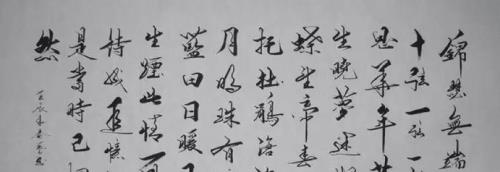 錦瑟無端
十弦一弦一
思華年莊
生曉夢迷蝴
蝶望帝春
托杜鵑滄
月明珠有
藍田日暖
生煙此情可
待成追憶
是當時已惘
然